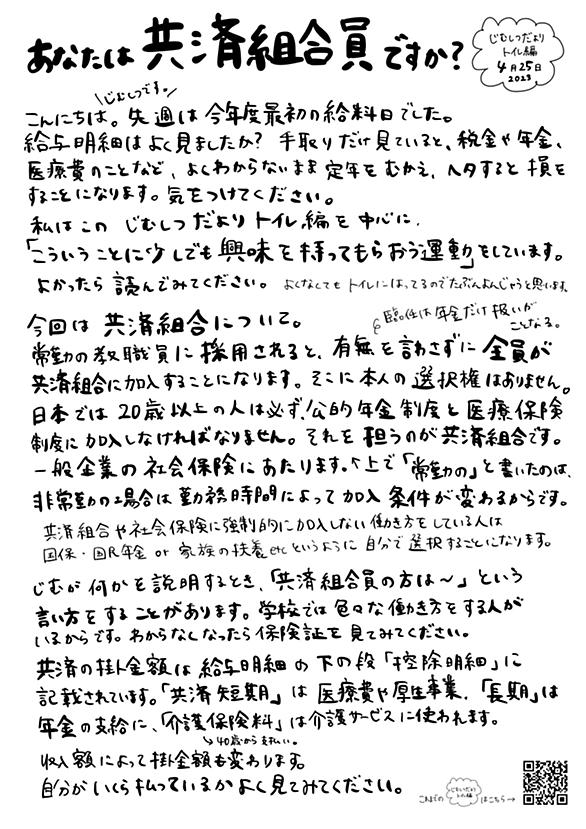 あなたは共済組合員ですか?
じむしつだより
トイレ編
4月25日
2023
じむしつです。
こんにちは。先週は今年度最初の給料日でした。
給与明細はよく見ましたか? 手取りだけ見ていると、税金や年金、
医療費のことなど、よくわからないまま定年をむかえ、ヘタすると損を
することになります。気をつけてください。
私はこの じむしつだよりトイレ編を中心に、
「こういうことに少しでも興味を持ってもらおう運動」をしています。
よかったら読んでみてください。 よくなくてもトイレにはってるのでたぶんよんじゃうと思います。
今回は 共済組合について。
臨任は年金だけ扱いが
ことなる。
常勤の教職員に採用されると、有無を言わさずに全員が
共済組合に加入することになります。そこに本人の選択権はありません。
日本では20歳以上の人は必ず、公的年金制度と医療保険
制度に加入しなければなりません。それを担うのが共済組合です。
一般企業の社会保険にあたります。↑上で「常勤の」と書いたのは、
非常勤の場合は勤務時間によって加入条件が変わるからです。
共済組合や社会保険に強制的に加入しない働き方をしている人は
国保・国民年金 or 家族の扶養etcというように自分で選択することになります。
じむが何かを説明するとき、「共済組合員の方は～」という
言い方をすることがあります。学校では色々な働き方をする人が
いるからです。わからなくなったら保険証を見てみてください。
共済の掛金額は給与明細の下の段「控除明細」に
記載されています。「共済短期」は医療費や厚生事業、「長期」は
年金の支給に、「介護保険料」は介護サービスに使われます。
↳40歳から支払い。
収入額によって掛金額も変わります。
自分がいくら払っているかよく見てみてください。
これまでの じむしつだより トイレ編 はこちら→